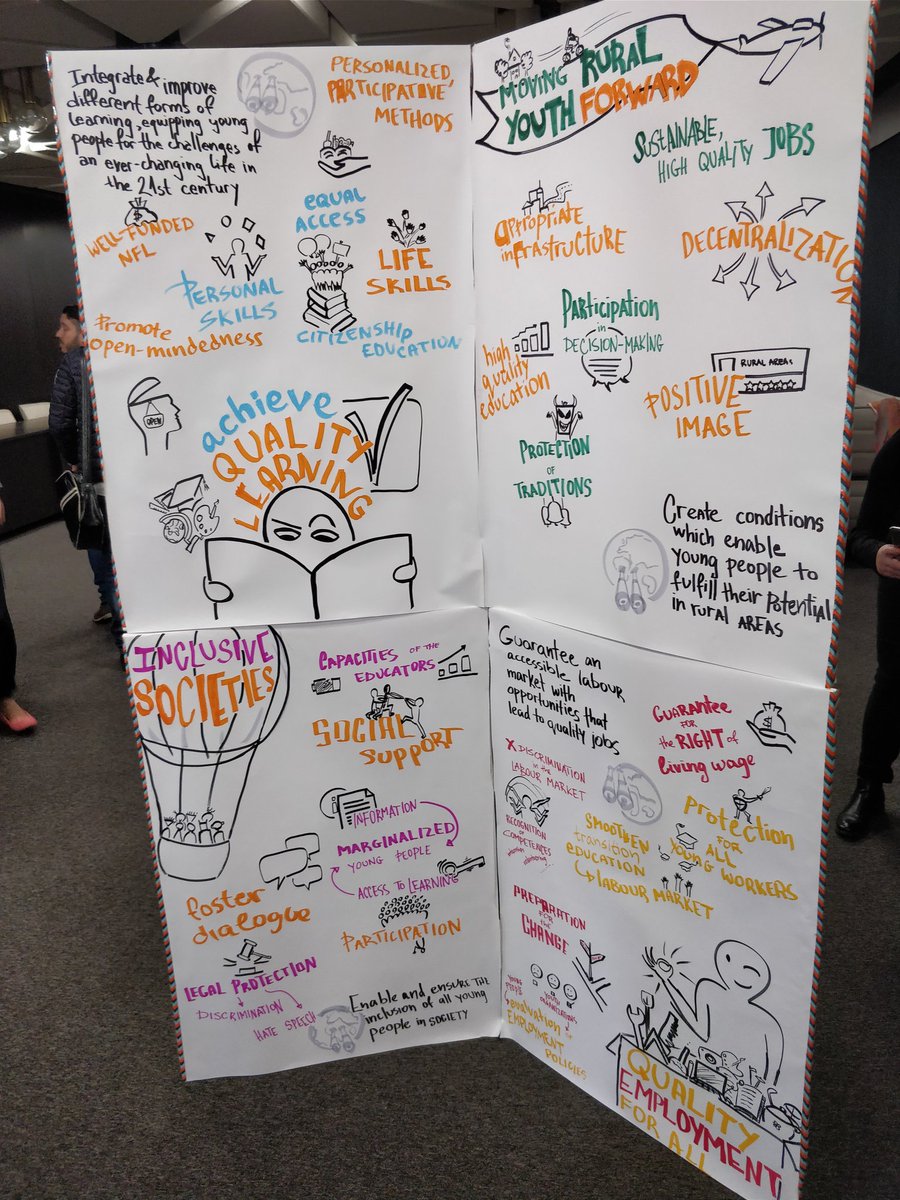 Integrate & improve
different forms of
learning, equipping young
people for the challenges of
an ever-changing life in
the 21st century
PERSONALIZED,
PARTICIPATIVE
METHODS
WELL-FUNDED
NFL
EQUAL
ACCESS
LIFE
SKILLS
PERSONAL
SKILLS
Promote
open-mindedness
CITIZENSHIP
EDUCATION
OPEN
achieve
QUALITY
LEARNING
MOVING RURAL
YOUTH FORWARD
SUSTAINABLE,
HIGH QUALITY JOBS
apropriate
infrastructure
DECENTRALIZATION
Participation
in
DECISION-MAKING
high
quality
education
RURAL AREAS
POSITIVE
IMAGE
PROTECTION
OF
TRADITIONS
Create conditions
which enable
young people to
fulfill their potential
in rural AREAS
INCLUSIVE
SOCIETIES
CAPACITIES OF THE
EDUCATORS
SOCIAL
SUPPORT
INFORMATION
MARGINALIZED
YOUNG PEOPLE
ACCESS TO LEARNING
foster
dialogue
PARTICIPATION
LEGAL PROTECTION
DISCRIMINATION
HATE SPEECH
Enable and ensure the
inclusion of all young
people in SOCIETY
Guarantee an
accessible labour
market with
opportunities that
lead to quality jobs
GUARANTEE
FOR
the RIGHT of
living wage
X DISCRIMINATION
in the
LABOUR MARKET
RECOGNITION
of
COMPETENCES
SMOOTHEN
transition
EDUCATION
LABOUR MARKET
Protection
FOR
ALL
YOUNG WORKERS
PREPARATION
FOR
the
CHANGE
YOUNG
PEOPLE
YOUTH
ORGANIZATIONS
evaluation of
EMPLOYMENT
POLICIES
QUALITY
EMPLOYMENT
FOR ALL